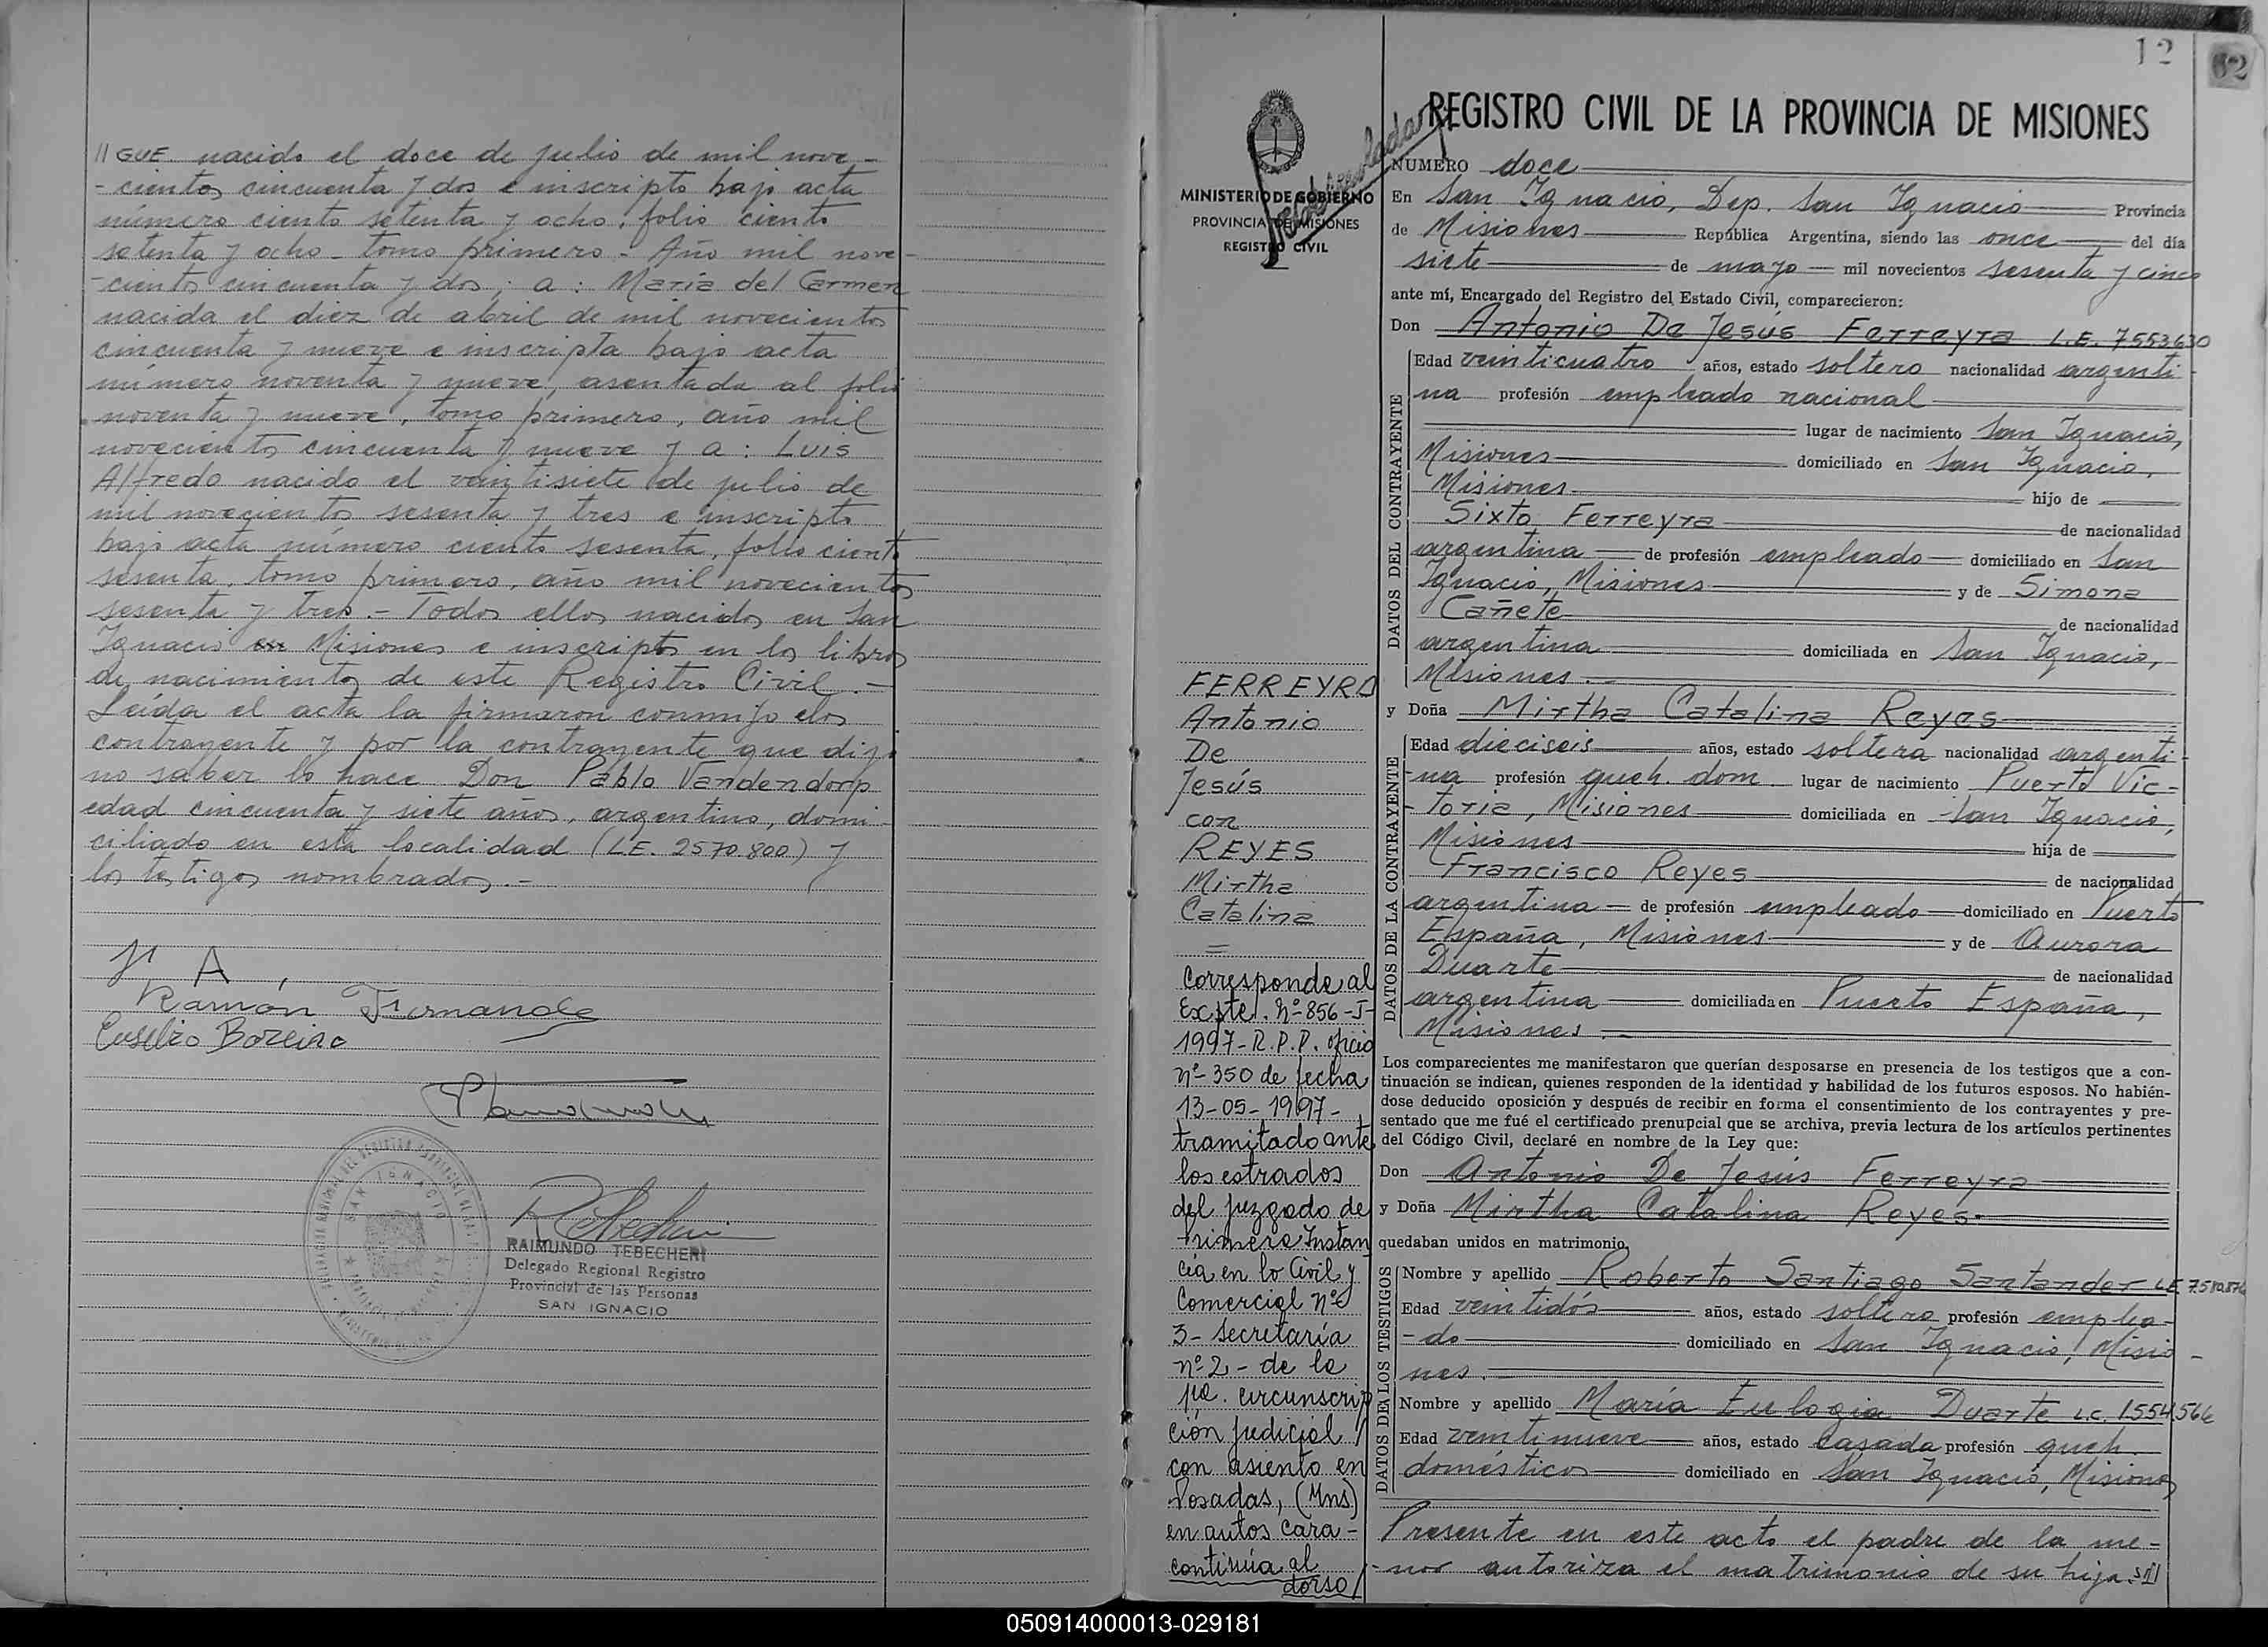 // GUE. nacido el doce de julio de mil nove-
-cientos cincuenta y dos e inscripto bajo acta
número ciento setenta y ocho, folio ciento
setenta y ocho - tomo primero - Año mil nove-
-cientos cincuenta y dos; a: María del Carmen
nacida el diez de abril de mil novecientos
cincuenta y nueve e inscripta bajo acta
número noventa y nueve, asentada al folio
noventa y nueve, tomo primero, año mil
novecientos cincuenta y nueve y a: LUIS
Alfredo nacido el veintisiete de julio de
mil novecientos sesenta y tres e inscripto
bajo acta número ciento sesenta, folio ciento
sesenta, tomo primero, año mil novecientos
sesenta y tres.- Todos ellos nacidos en San
Ignacio Misiones e inscriptos en los libros
de nacimientos de este Registro Civil.-
Leída el acta la firmaron conmigo el
contrayente y por la contrayente que dijo
no saber lo hace Don Pablo Vandendorp
edad cincuenta y siete años, argentino, domi-
ciliado en esta localidad (L.E. 2570.800) y
los testigos nombrados.-
Ramón Fernandez
Eusebio Boreiro
SAN IGNACIO
RAIMUNDO TEBECHERI
Delegado Regional Registro
Provincial de las Personas
SAN IGNACIO
12
62
REGISTRO CIVIL DE LA PROVINCIA DE MISIONES
MINISTERIO DE GOBIERNO
PROVINCIA DE MISIONES
REGISTRO CIVIL
NUMERO doce
En San Ignacio, Dep. San Ignacio Provincia
de Misiones República Argentina, siendo las once del día
siete de mayo mil novecientos sesenta y cinco
ante mí, Encargado del Registro del Estado Civil, comparecieron:
Don Antonio De Jesús Ferreyra L.E. 7553630
DATOS DEL CONTRAYENTE
Edad veinticuatro años, estado soltero nacionalidad argenti-
na profesión empleado nacional
lugar de nacimiento San Ignacio,
Misiones domiciliado en San Ignacio,
Misiones hijo de
Sixto Ferreyra de nacionalidad
argentina de profesión empleado domiciliado en San
Ignacio, Misiones y de Simona
Cañete de nacionalidad
argentina domiciliada en San Ignacio,
Misiones.-
y Doña Mirtha Catalina Reyes
DATOS DE LA CONTRAYENTE
Edad dieciseis años, estado soltera nacionalidad argenti-
-na profesión queh. dom. lugar de nacimiento Puerto Vic-
-toria, Misiones domiciliada en San Ignacio,
Misiones hija de
Francisco Reyes de nacionalidad
argentina de profesión empleado domiciliado en Puerto
España, Misiones y de Aurora
Duarte de nacionalidad
argentina domiciliada en Puerto España,
Misiones.
Los comparecientes me manifestaron que querían desposarse en presencia de los testigos que a con-
tinuación se indican, quienes responden de la identidad y habilidad de los futuros esposos. No habién-
dose deducido oposición y después de recibir en forma el consentimiento de los contrayentes y pre-
sentado que me fué el certificado prenupcial que se archiva, previa lectura de los artículos pertinentes
del Código Civil, declaré en nombre de la Ley que:
Don Antonio De Jesús Ferreyra
y Doña Mirtha Catalina Reyes.
quedaban unidos en matrimonio.
DATOS DE LOS TESTIGOS
Nombre y apellido Roberto Santiago Santander L.E. 7.580.876
Edad veintidós años, estado soltero profesión emplea-
-do domiciliado en San Ignacio, Misio-
nes.
Nombre y apellido María Eulogia Duarte L.C. 1554.566
Edad veintinueve años, estado casada profesión queh.
domésticos domiciliado en San Ignacio, Misiones
Presente en este acto el padre de la me-
-nor autoriza el matrimonio de su hija.
FERREYRA
Antonio
De
Jesús
con
REYES
Mirtha
Catalina
=
Corresponde al
Expte. Nº 856-J-
1997-R.P.P. oficio
nº 350 de fecha
13-05-1997-
tramitado ante
los estrados
del juzgado de
Primera Instan
cia en lo Civil y
Comercial nº
3- secretaría
nº 2- de la
1ra. circunscrip
ción judicial
con asiento en
Posadas, (Mns)
en autos cara-
continúa al
dorso/
050914000013-029181